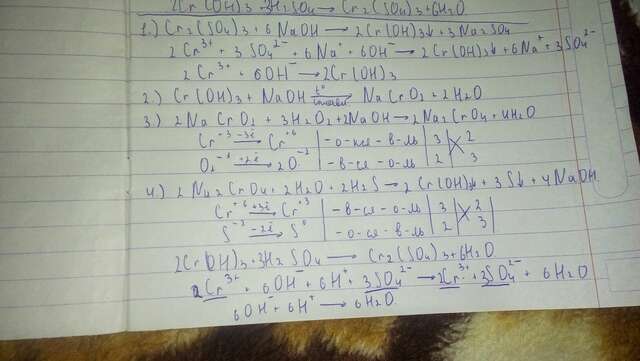 2Cr(OH)3+3H2SO4 → Cr2(SO4)3+6H2O
1.) Cr2(SO4)3+6NaOH → 2Cr(OH)3↓+3Na2SO4
2Cr³⁺+3SO4²⁻+6Na⁺+6OH⁻ → 2Cr(OH)3↓+6Na⁺+3SO4²⁻
2Cr³⁺+6OH⁻ → 2Cr(OH)3
2.) Cr(OH)3+NaOH t° сплавл. → NaCrO2+2H2O
3.) 2NaCrO2+3H2O2+2NaOH → 2Na2CrO4+4H2O
Cr⁺³ -3ē → Cr⁺⁶ |-о-ся-в-ль| 3 | 2
O2⁻¹ +2ē → 2O⁻² |-в-ся-о-ль| 2 | 3
4.) 2Na2CrO4+2H2O+2H2S → 2Cr(OH)3↓+3S↓+4NaOH
Cr⁺⁶ +3ē → Cr⁺³ |-в-ся-о-ль| 3 | 2
S⁻² -2ē → S⁰ |-о-ся-в-ль| 2 | 3
2Cr(OH)3+3H2SO4 → Cr2(SO4)3+6H2O
2Cr³⁺+6OH⁻+6H⁺+3SO4²⁻ → 2Cr³⁺+3SO4²⁻+6H2O
6OH⁻+6H⁺ → 6H2O